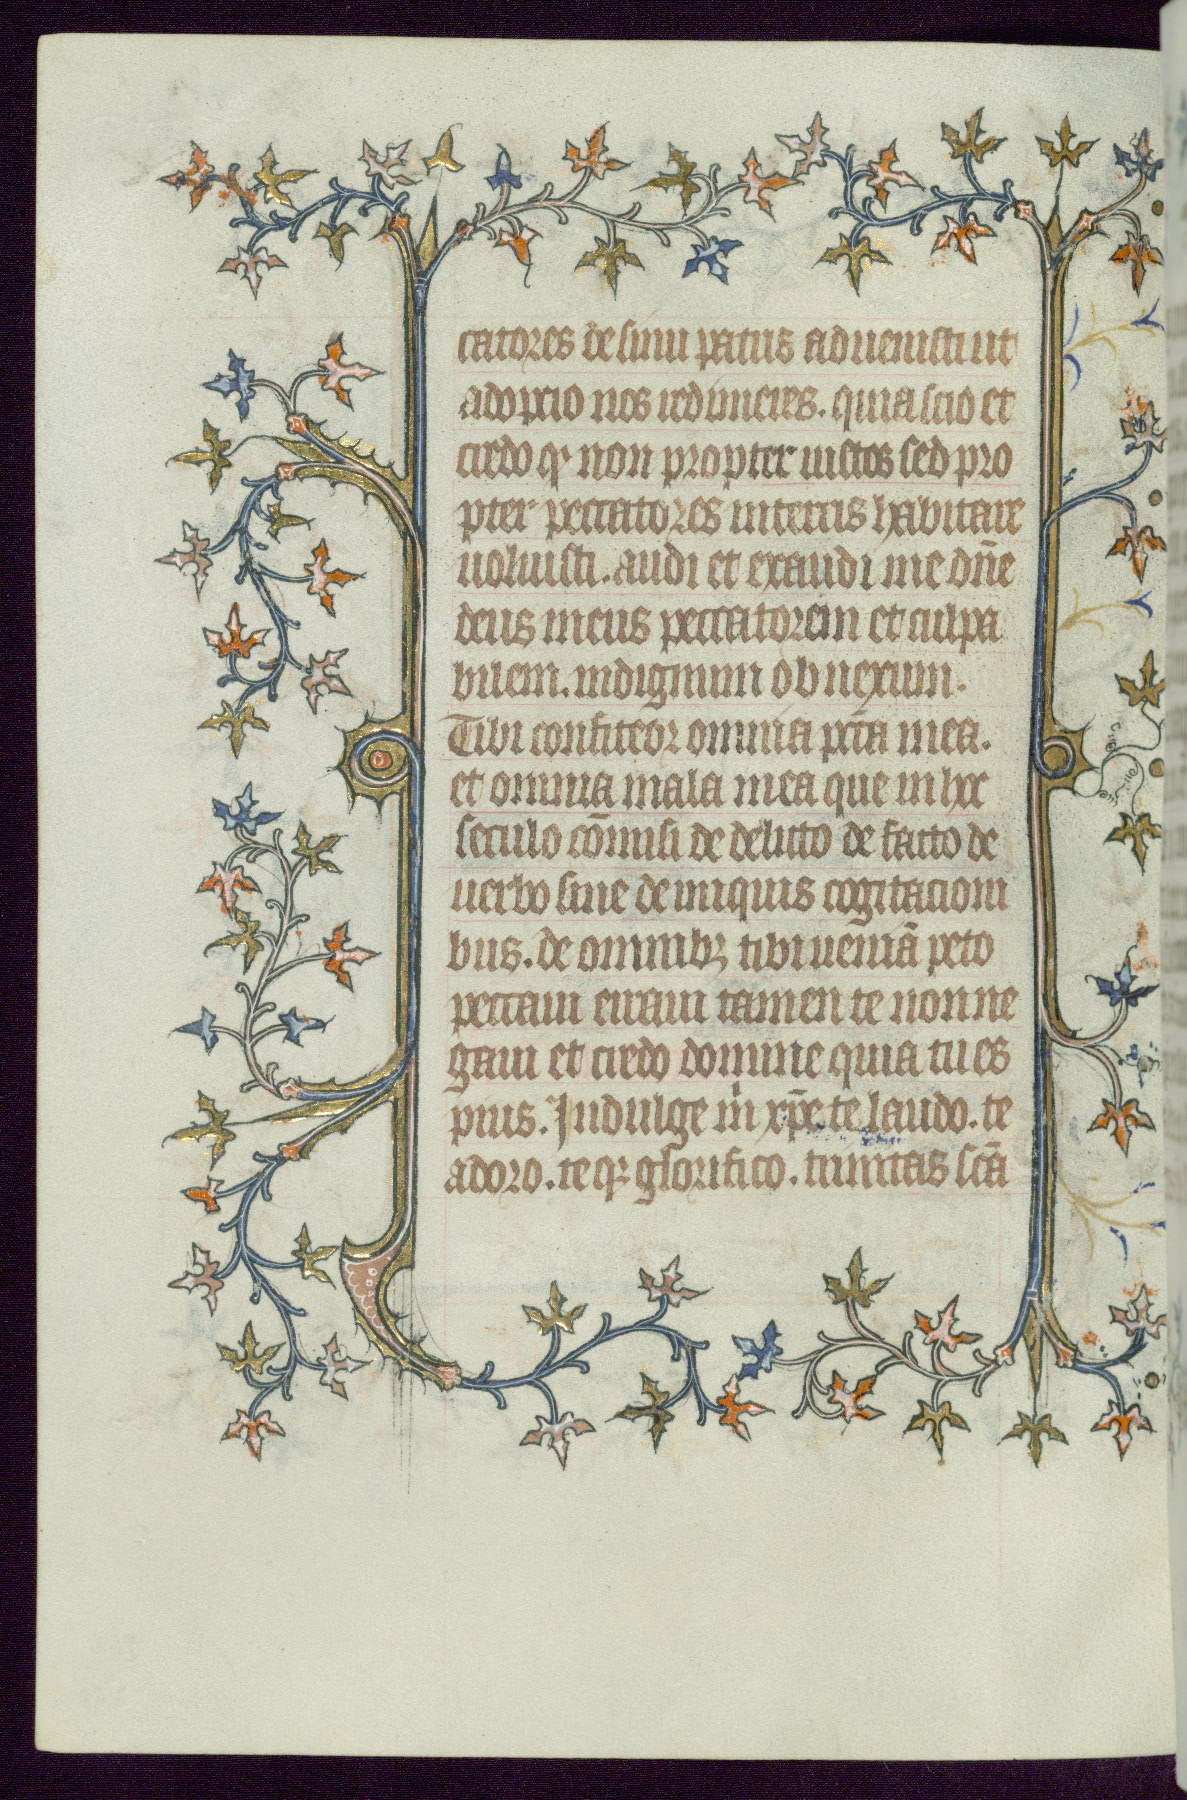 catores de sinu patris aduenisti ut
adopcio nos redimeres. quia scio et
credo qr non propter iustos sed pro
pter peccatores in terris habitare
uoluisti. audi et exaudi me dn̄e
deus meus peccatorem et culpa
bilem. indignum obnexium.
Tibi confiteor omnia pctā mea.
et omnia mala mea que in hoc
seculo cōmisi de delicto de facto de
uerbo siue de iniquis cogitacioni
bus. de omnibꝫ tibi ueniā peto
peccaui erraui tamen te non ne
gaui et credo domine quia tu es
pius. Indulge mͥ xp̄e te laudo. te
adoro. te qr glorifico. trinitas scā